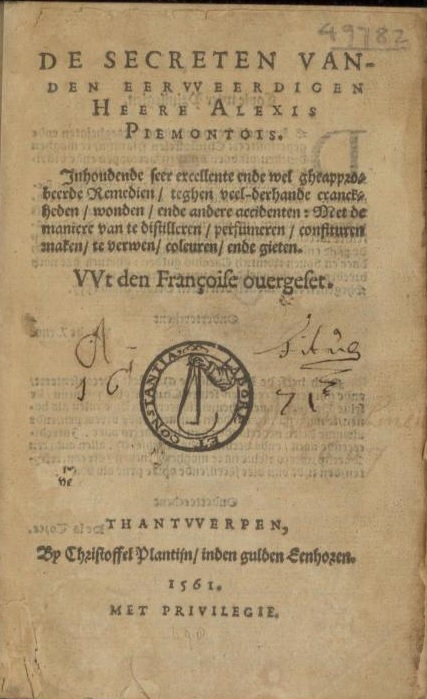 49782
DE SECRETEN VAN-
DEN EERVVEERDIGEN
HEERE ALEXIS
PIEMONTOIS.
Inhoudende seer excellente ende wel gheappro-
beerde Remedien/ teghen veel-derhande cranck-
heden/ wonden/ ende andere accidenten: Met de
maniere van te distilleren/ perfumeren/ confituren
maken/ te verwen/ coleuren/ ende gieten.
VVt den Françoise ouergeset.
LABORE ET CONSTANTIA
THANTVVERPEN,
By Christoffel Plantijn/ inden gulden Eenhoren.
1561.
MET PRIVILEGIE.